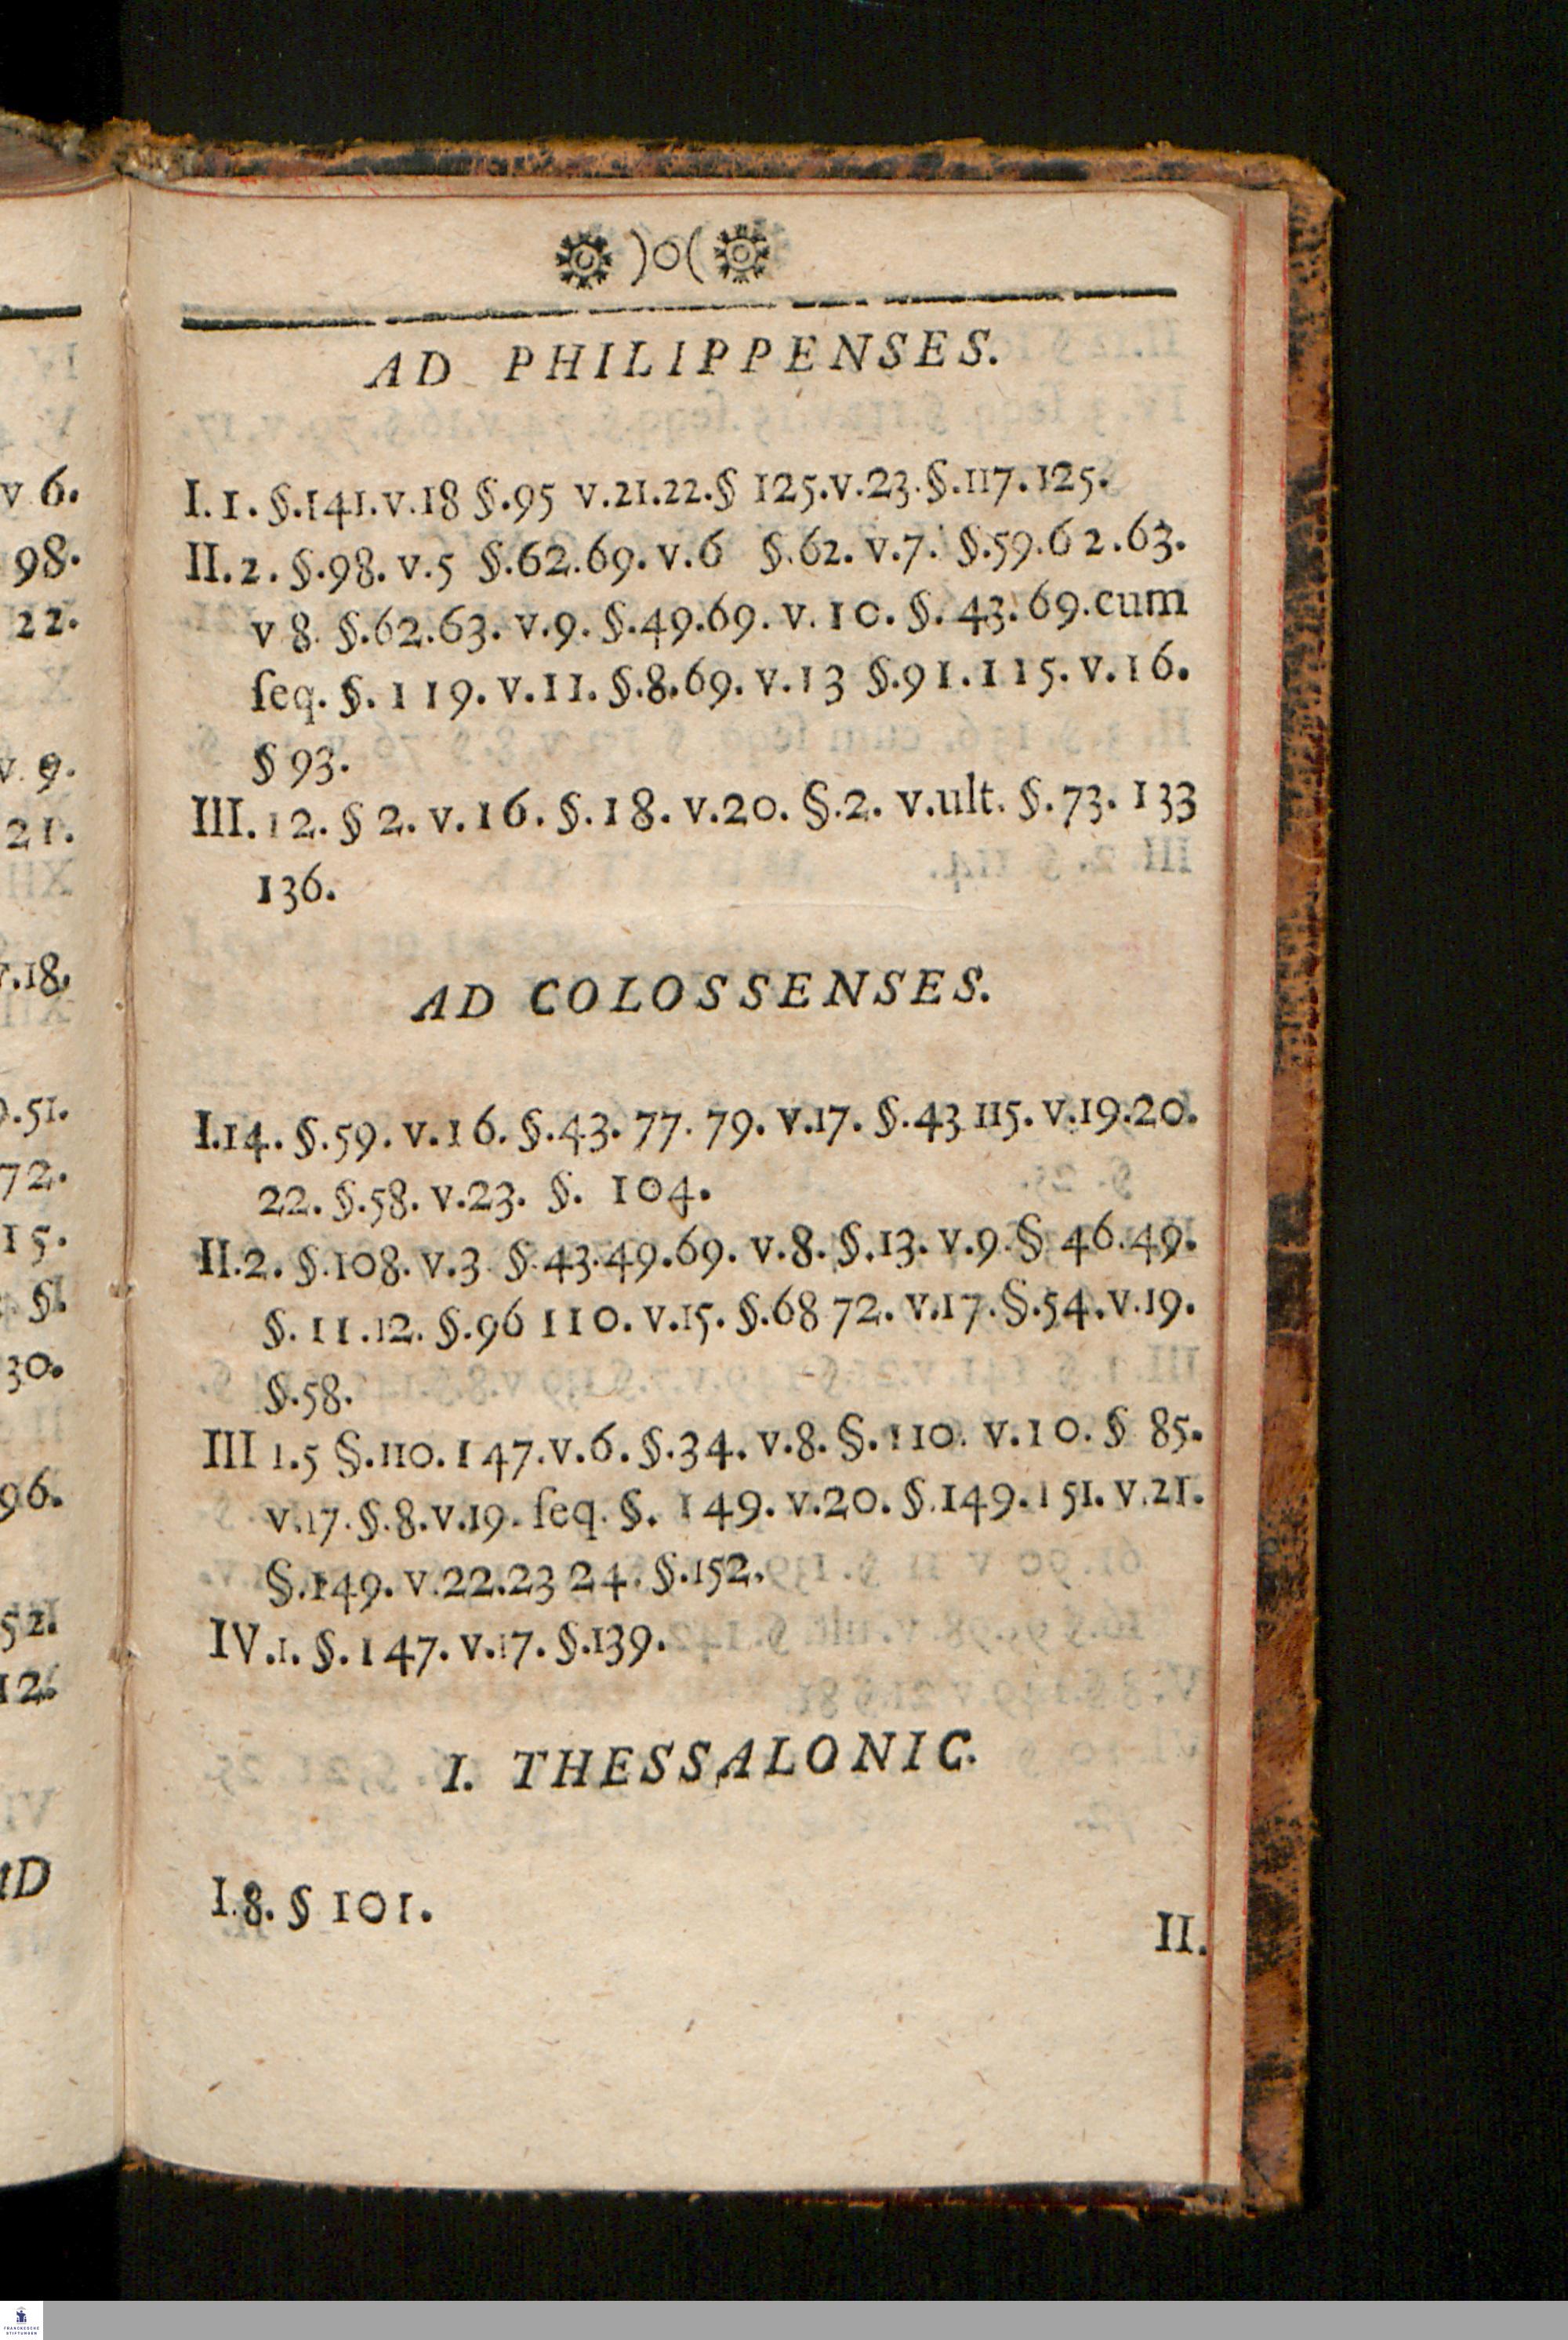 )o(
AD PHILIPPENSES.
I. 1. §.141.v.18 §.95 v.21.22.§ 125.v.23.§.117.125.
II. 2. §.98. v.5 §.62.69. v.6 §.62. v.7. §.59.62.63.
v 8. §.62.63. v.9. §.49.69. v. 10. §. 43. 69.cum
ſeq. §. 119. v.11. §.8.69. v.13 §.91.115. v.16.
§ 93.
III. 12. § 2. v.16. §.18. v.20. §.2. v.ult. §.73. 133
136.
AD COLOSSENSES.
I.14. §.59. v.16. §.43. 77. 79. v.17. §.43 115. v.19.20.
22. §.58. v.23. §. 104.
II.2. §.108. v.3 §.43.49.69. v.8. §.13. v.9.§ 46.49.
§. 11.12. §.96 110. v.15. §.68 72. v.17.§.54.v.19.
§.58.
III 1.5 §.110.147.v.6. §.34. v.8. §.110. v.10. § 85.
v.17.§.8.v.19.ſeq. §. 149. v.20. §.149.151. v.21.
§.149. v.22.23 24. §.152.
IV.1. §.147. v.17. §.139.
I. THESSALONIC.
I.8. § 101.
II.
v 6.
98.
22.
v. 9.
21.
v.18.
.51.
72.
15.
§.
30.
96.
52.
12.
D
FRANCKESCHE
STIFTUNGEN